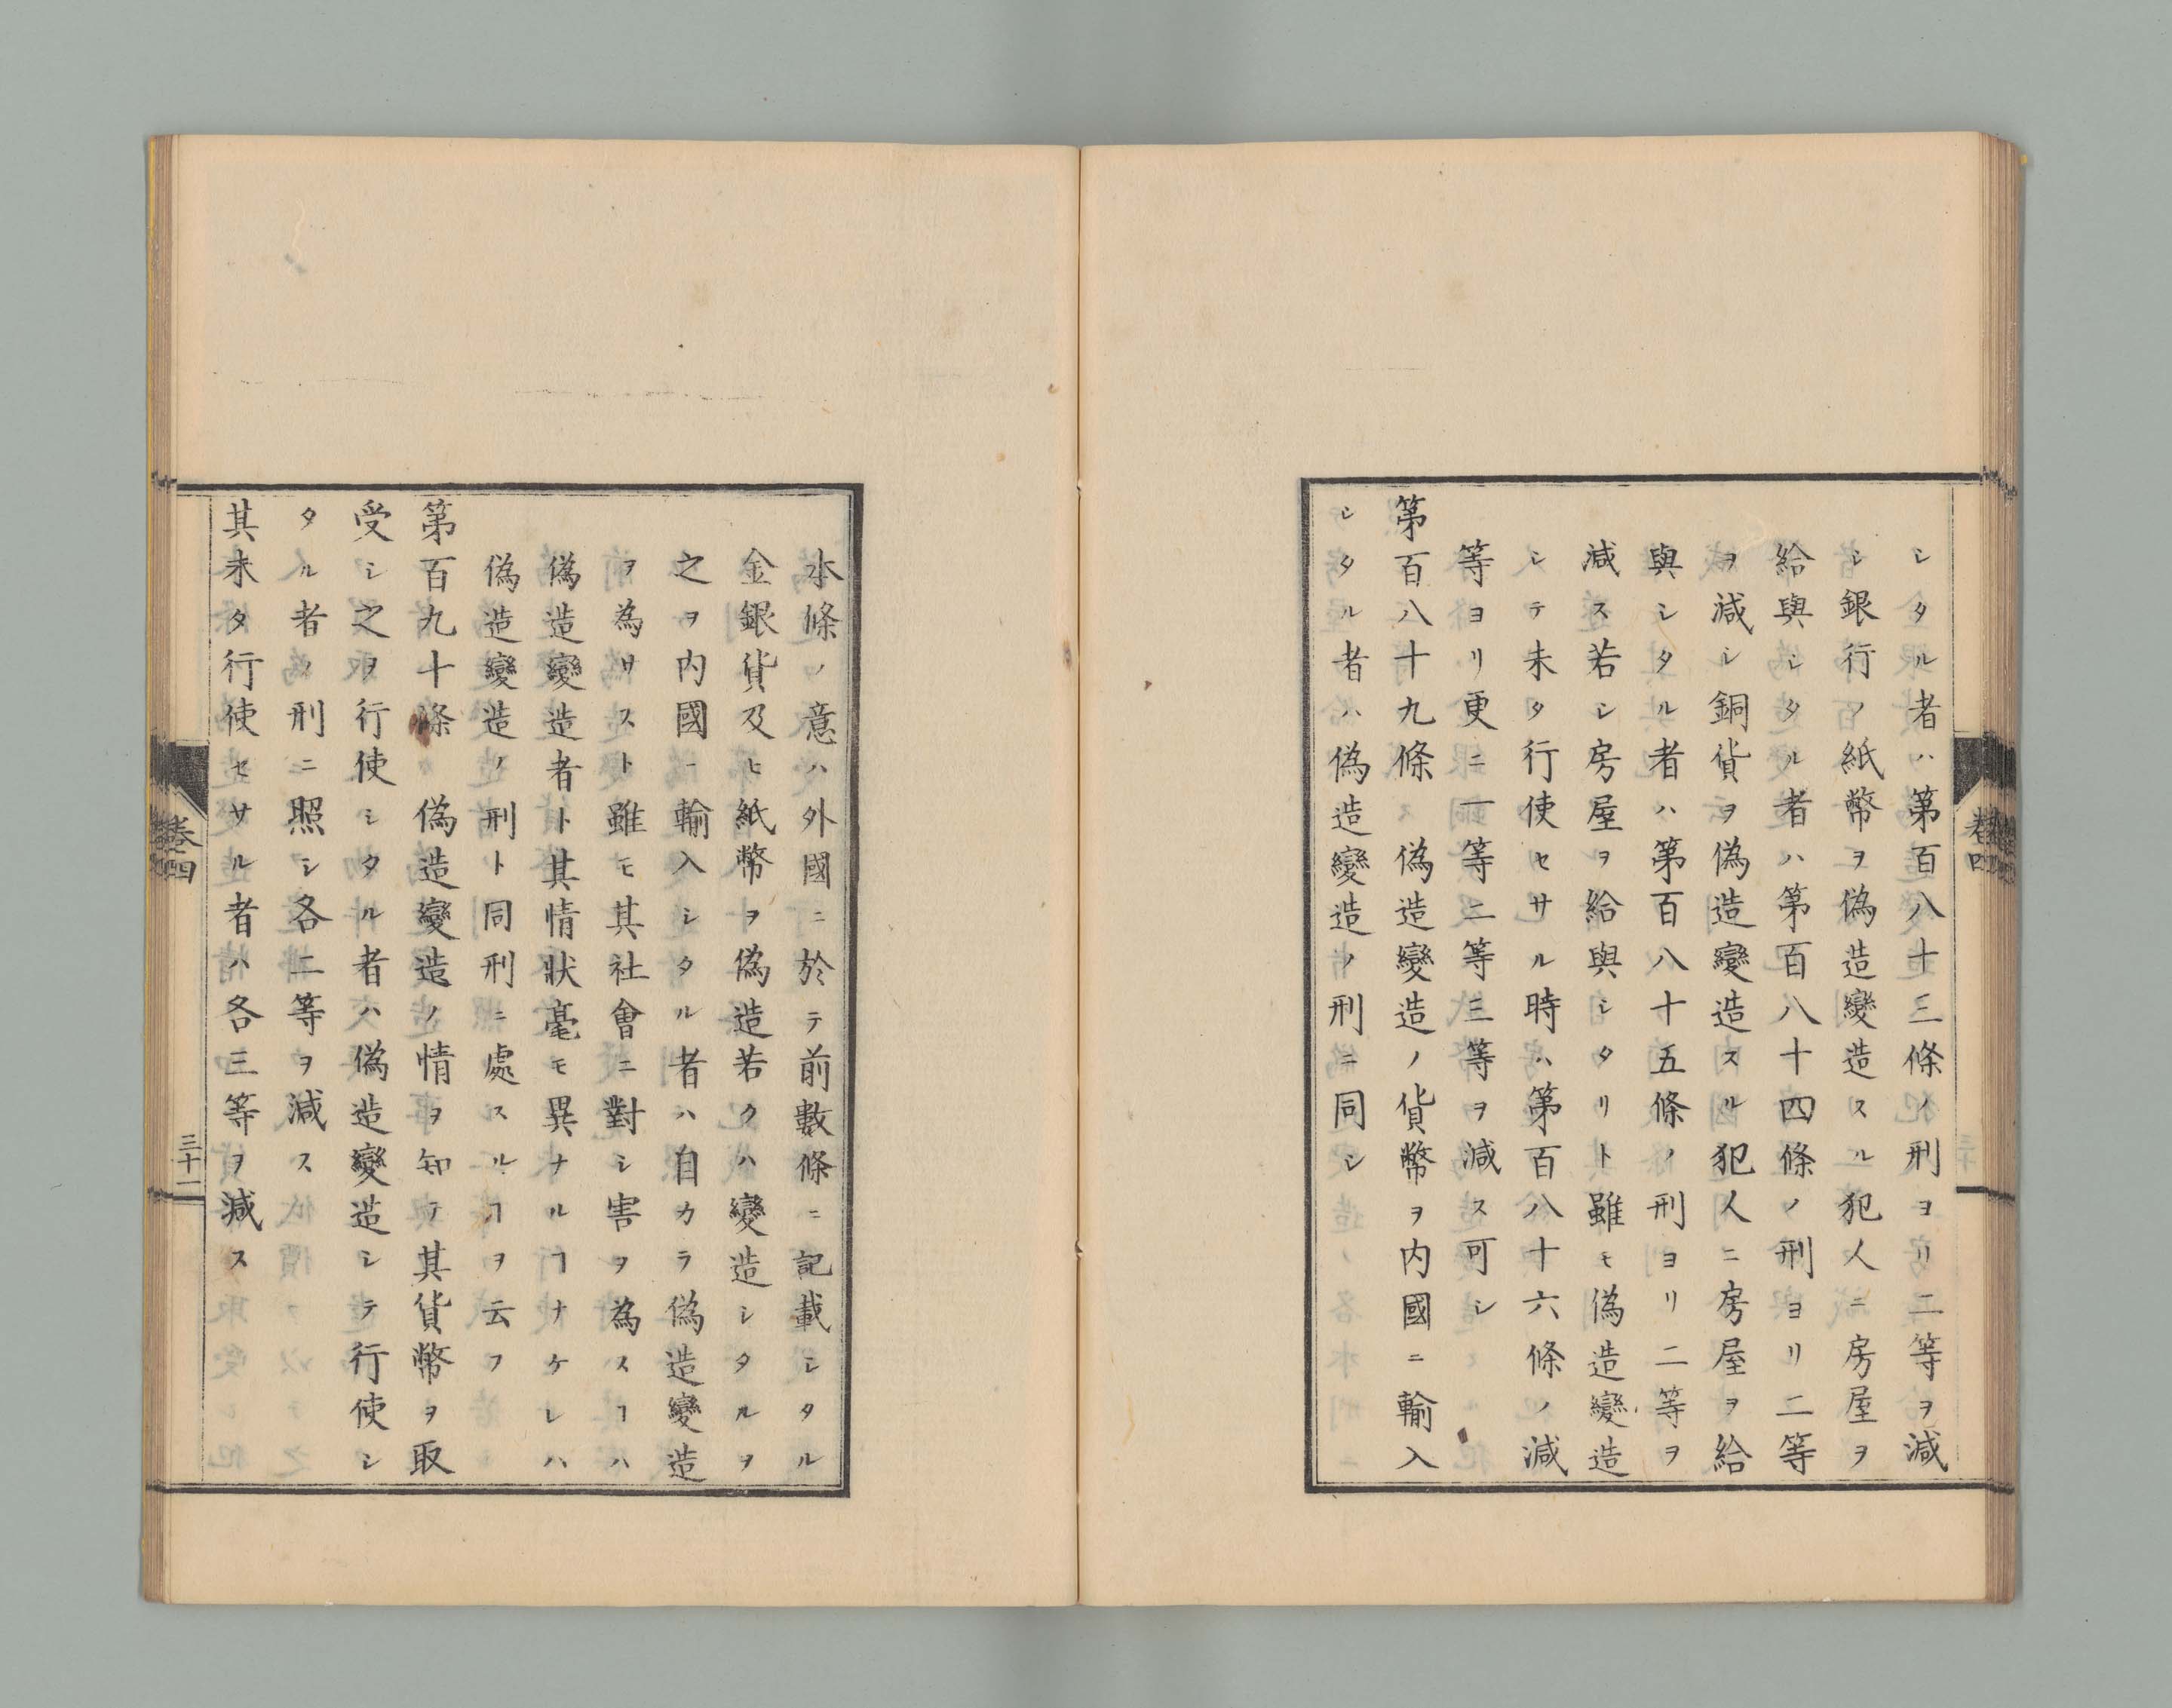 シタル者ハ第百八十三條ノ刑ヨリ二等ヲ減
シ銀行ノ紙幣ヲ偽造變造スル犯人ニ房屋ヲ
給與シタル者ハ第百八十四條ノ刑ヨリ二等
ヲ減シ銅貨ヲ偽造變造スル犯人ニ房屋ヲ給
與シタル者ハ第百八十五條ノ刑ヨリ二等ヲ
減ス若シ房屋ヲ給與シタリト雖モ偽造變造
シテ未タ行使セサル時ハ第百八十六條ノ減
等ヨリ更ニ一等二等三等ヲ減ス可シ
第百八十九條 偽造變造ノ貨幣ヲ内國ニ輸入
シタル者ハ偽造變造ノ刑ニ同シ
卷四
本條ノ意ハ外國ニ於テ前數條ニ記載シタル
金銀貨及ヒ紙幣ヲ偽造若クハ變造シタルヲ
之ヲ内國ニ輸入シタル者ハ自カラ偽造變造
ヲ為サスト雖モ其社會ニ對シ害ヲ為スヿハ
偽造變造者ト其情狀毫モ異ナルヿナケレハ
偽造變造ノ刑ト同刑ニ處スルヿヲ云フ
第百九十條 偽造變造ノ情ヲ知テ其貨幣ヲ取
受シ之ヲ行使シタル者ハ偽造變造シテ行使シ
タル者ノ刑ニ照シ各二等ヲ減ス
其未タ行使セサル者ハ各三等ヲ減ス
卷四
三十一